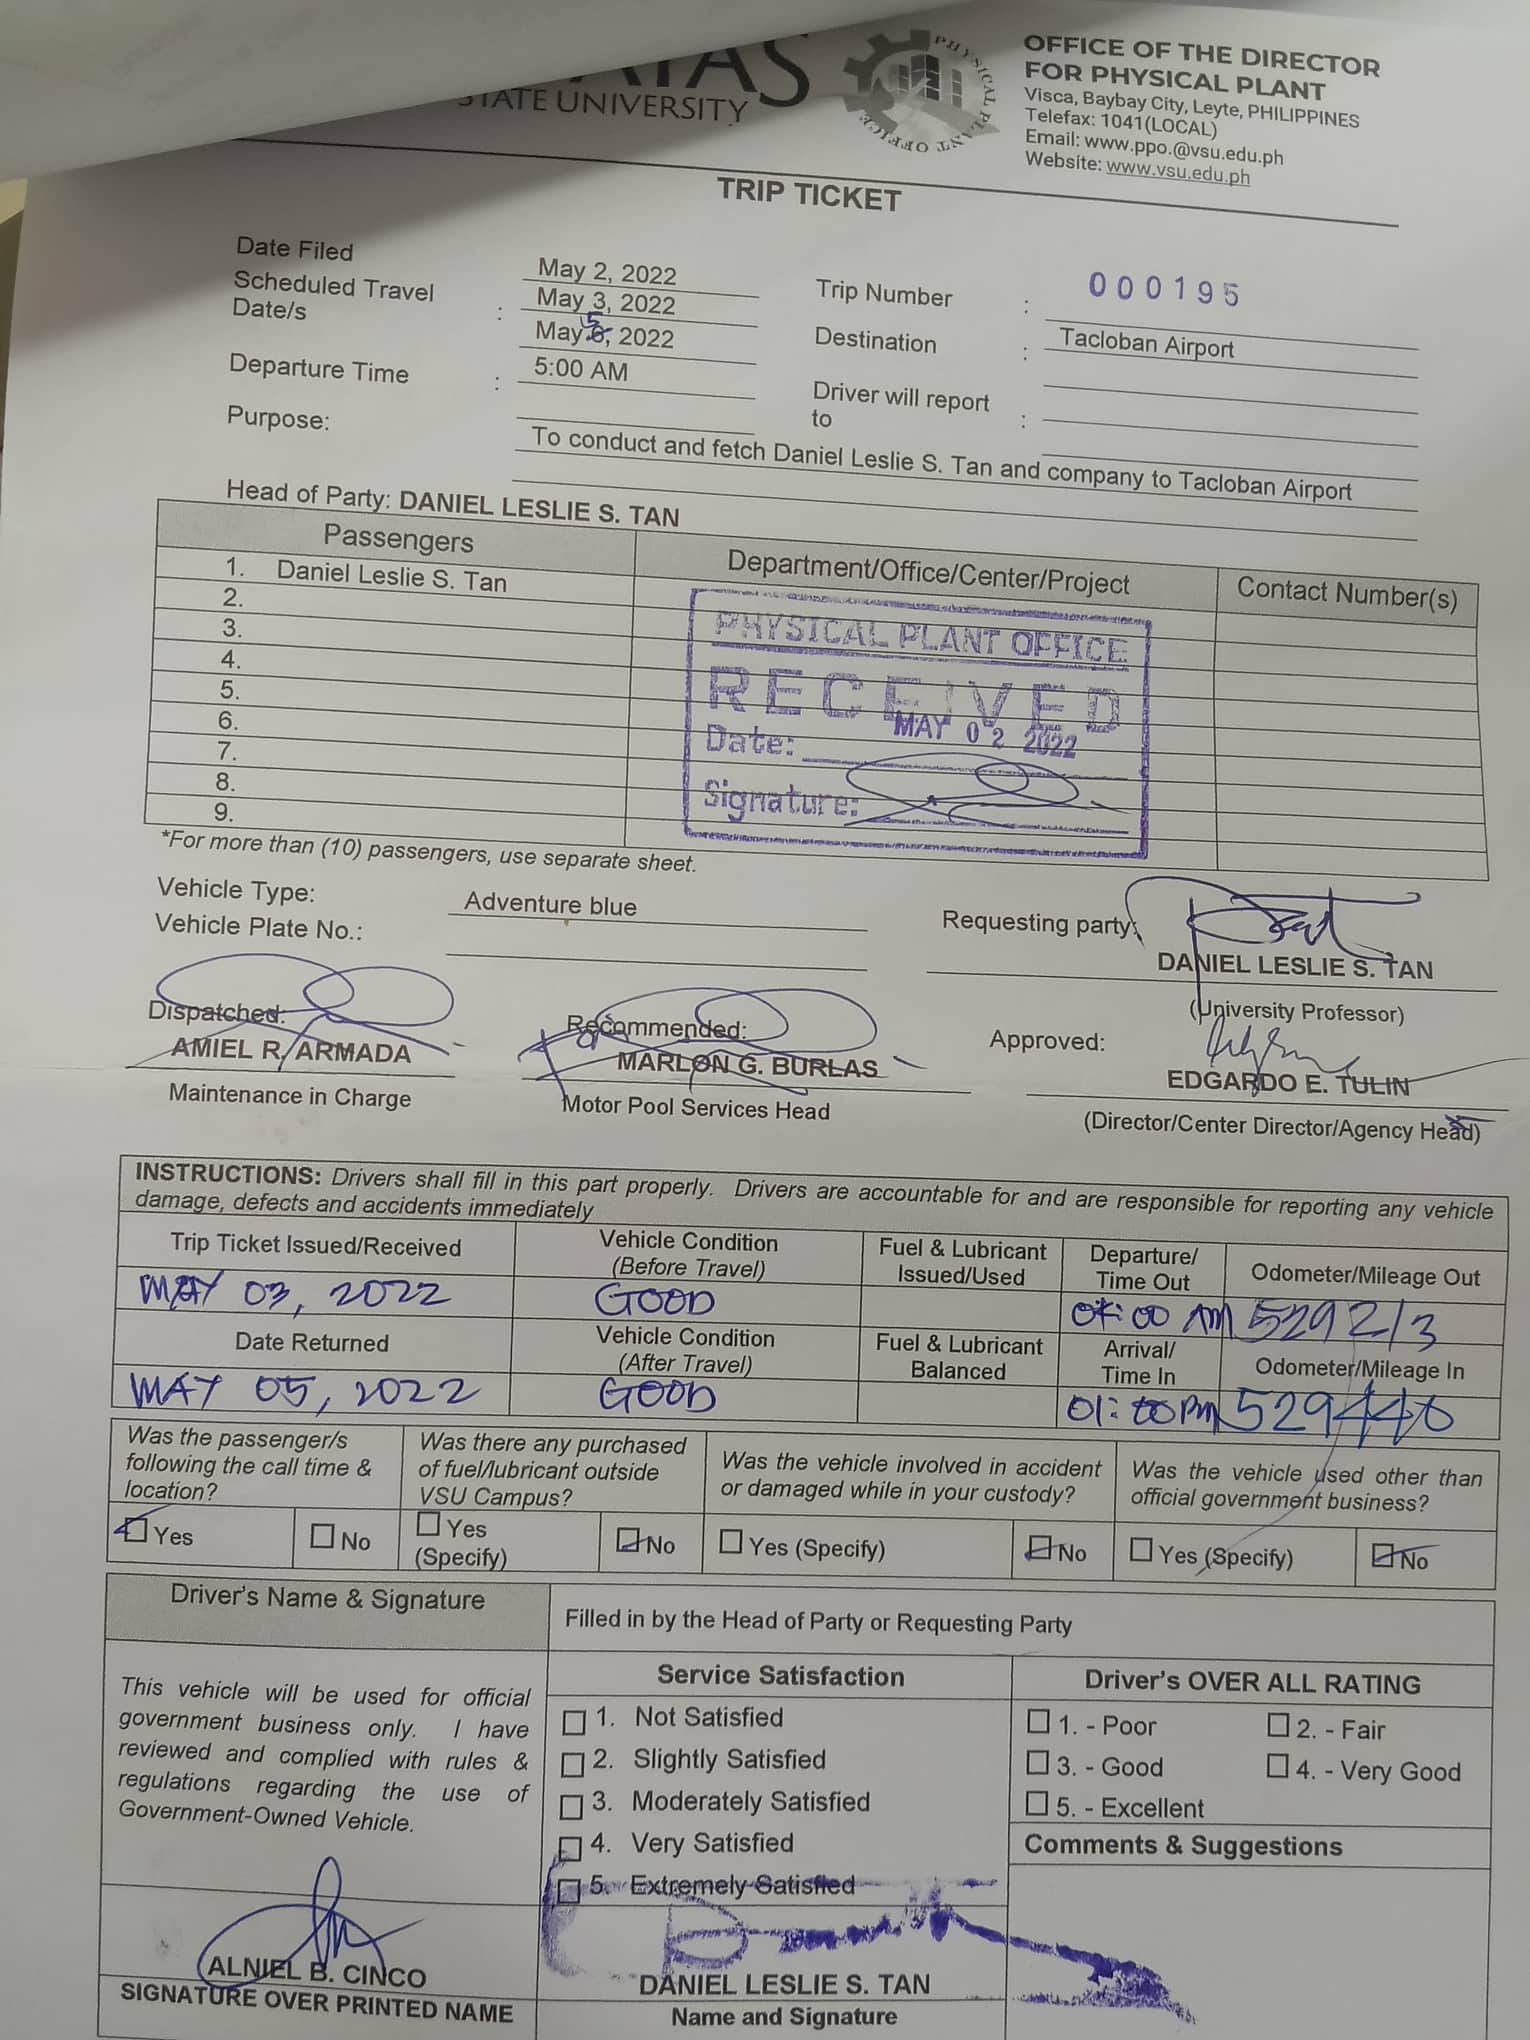 STATE UNIVERSITY
PHYSICAL PLANT OFFICE
OFFICE OF THE DIRECTOR
FOR PHYSICAL PLANT
Visca, Baybay City, Leyte, PHILIPPINES
Telefax: 1041(LOCAL)
Email: www.ppo.@vsu.edu.ph
Website: www.vsu.edu.ph
TRIP TICKET
Date Filed May 2, 2022
Scheduled Travel Date/s : May 3, 2022
May 5, 2022
Departure Time : 5:00 AM
Trip Number : 000195
Destination : Tacloban Airport
Driver will report to :
Purpose: To conduct and fetch Daniel Leslie S. Tan and company to Tacloban Airport
Head of Party: DANIEL LESLIE S. TAN
Passengers Department/Office/Center/Project Contact Number(s)
1. Daniel Leslie S. Tan
2.
3.
4.
5.
6.
7.
8.
9.
PHYSICAL PLANT OFFICE
RECEIVED
Date: MAY 02 2022
Signature:
*For more than (10) passengers, use separate sheet.
Vehicle Type: Adventure blue
Vehicle Plate No.:
Requesting party:
DANIEL LESLIE S. TAN
(University Professor)
Dispatched:
AMIEL R. ARMADA
Maintenance in Charge
Recommended:
MARLON G. BURLAS
Motor Pool Services Head
Approved:
EDGARDO E. TULIN
(Director/Center Director/Agency Head)
INSTRUCTIONS: Drivers shall fill in this part properly. Drivers are accountable for and are responsible for reporting any vehicle
damage, defects and accidents immediately
Trip Ticket Issued/Received Vehicle Condition (Before Travel) Fuel & Lubricant Issued/Used Departure/ Time Out Odometer/Mileage Out
MAY 03, 2022 GOOD 04:00 AM 529213
Date Returned Vehicle Condition (After Travel) Fuel & Lubricant Balanced Arrival/ Time In Odometer/Mileage In
MAY 05, 2022 GOOD 01:00 PM 529440
Was the passenger/s following the call time & location?
Was there any purchased of fuel/lubricant outside VSU Campus?
Was the vehicle involved in accident or damaged while in your custody?
Was the vehicle used other than official government business?
Yes No Yes (Specify) No Yes (Specify) No Yes (Specify) No
Driver's Name & Signature
Filled in by the Head of Party or Requesting Party
This vehicle will be used for official
government business only. I have
reviewed and complied with rules &
regulations regarding the use of
Government-Owned Vehicle.
ALNIEL B. CINCO
SIGNATURE OVER PRINTED NAME
Service Satisfaction
1. Not Satisfied
2. Slightly Satisfied
3. Moderately Satisfied
4. Very Satisfied
5. Extremely Satisfied
DANIEL LESLIE S. TAN
Name and Signature
Driver's OVER ALL RATING
1. - Poor 2. - Fair
3. - Good 4. - Very Good
5. - Excellent
Comments & Suggestions